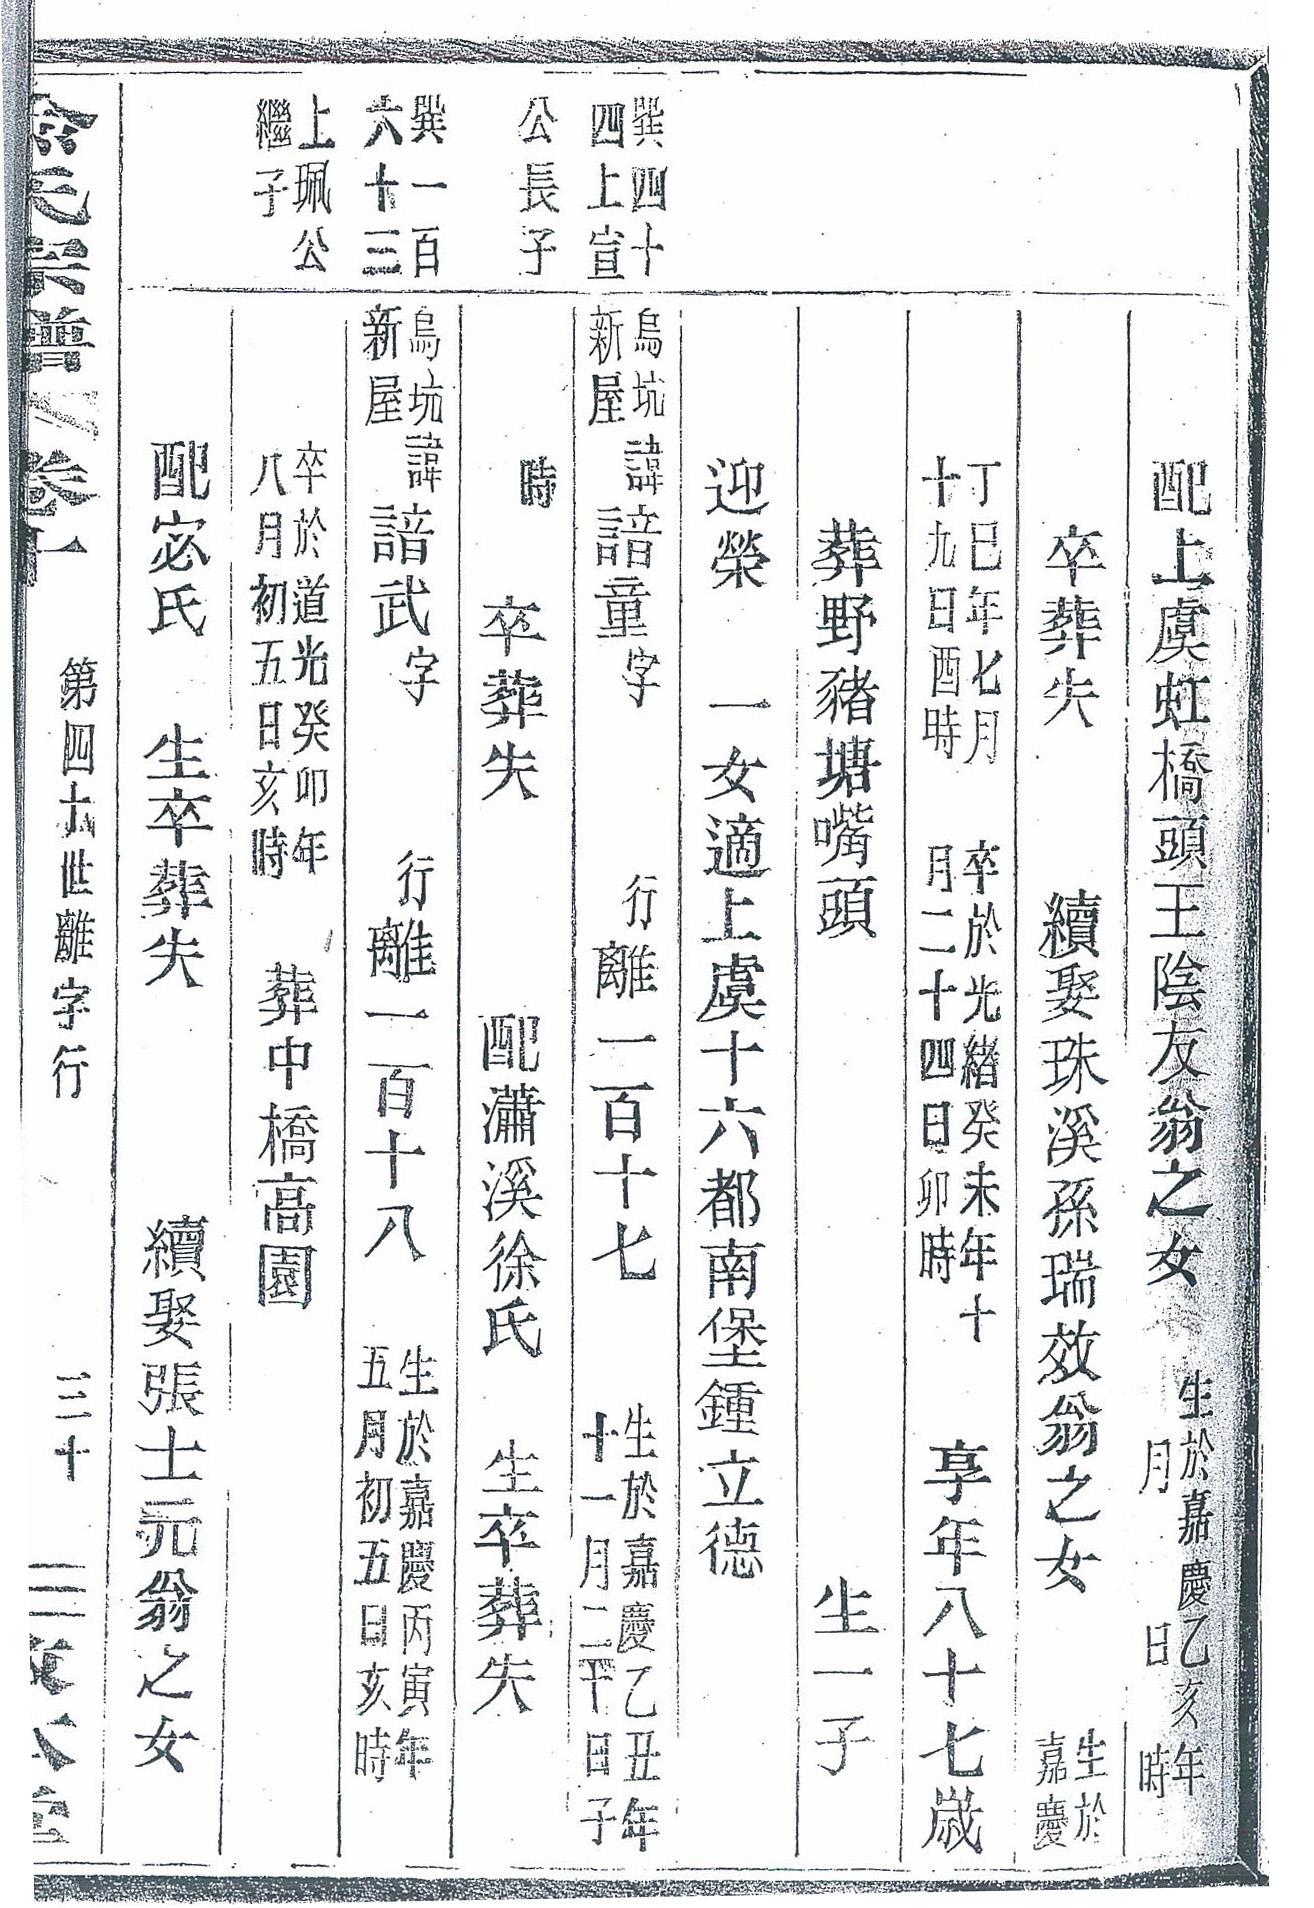 配上虞虹橋頭王陰友翁之女 生於嘉慶乙亥年
月 日 時
卒葬失 續娶珠溪孫瑞效翁之女 生於
嘉慶
丁巳年七月
十九日酉時 卒於光緒癸未年十
月二十四日卯時 享年八十七歲
葬野豬塘嘴頭 生一子
迎榮 一女適上虞十六都南堡鍾立德
巽四十
四上宣
烏坑
新屋 諱諳童字 行離一百十七 生於嘉慶乙丑年
十一月二十日子
公長子
時 卒葬失 配瀟溪徐氏 生卒葬失
巽一百
六十三
烏坑
新屋 諱諳武字 行離一百十八 生於嘉慶丙寅年
五月初五日亥時
上珮公
繼子
卒於道光癸卯年
八月初五日亥時 葬中橋高園
配宓氏 生卒葬失 續娶張士元翁之女
氏宗譜 卷十 第四十世離字行 三十